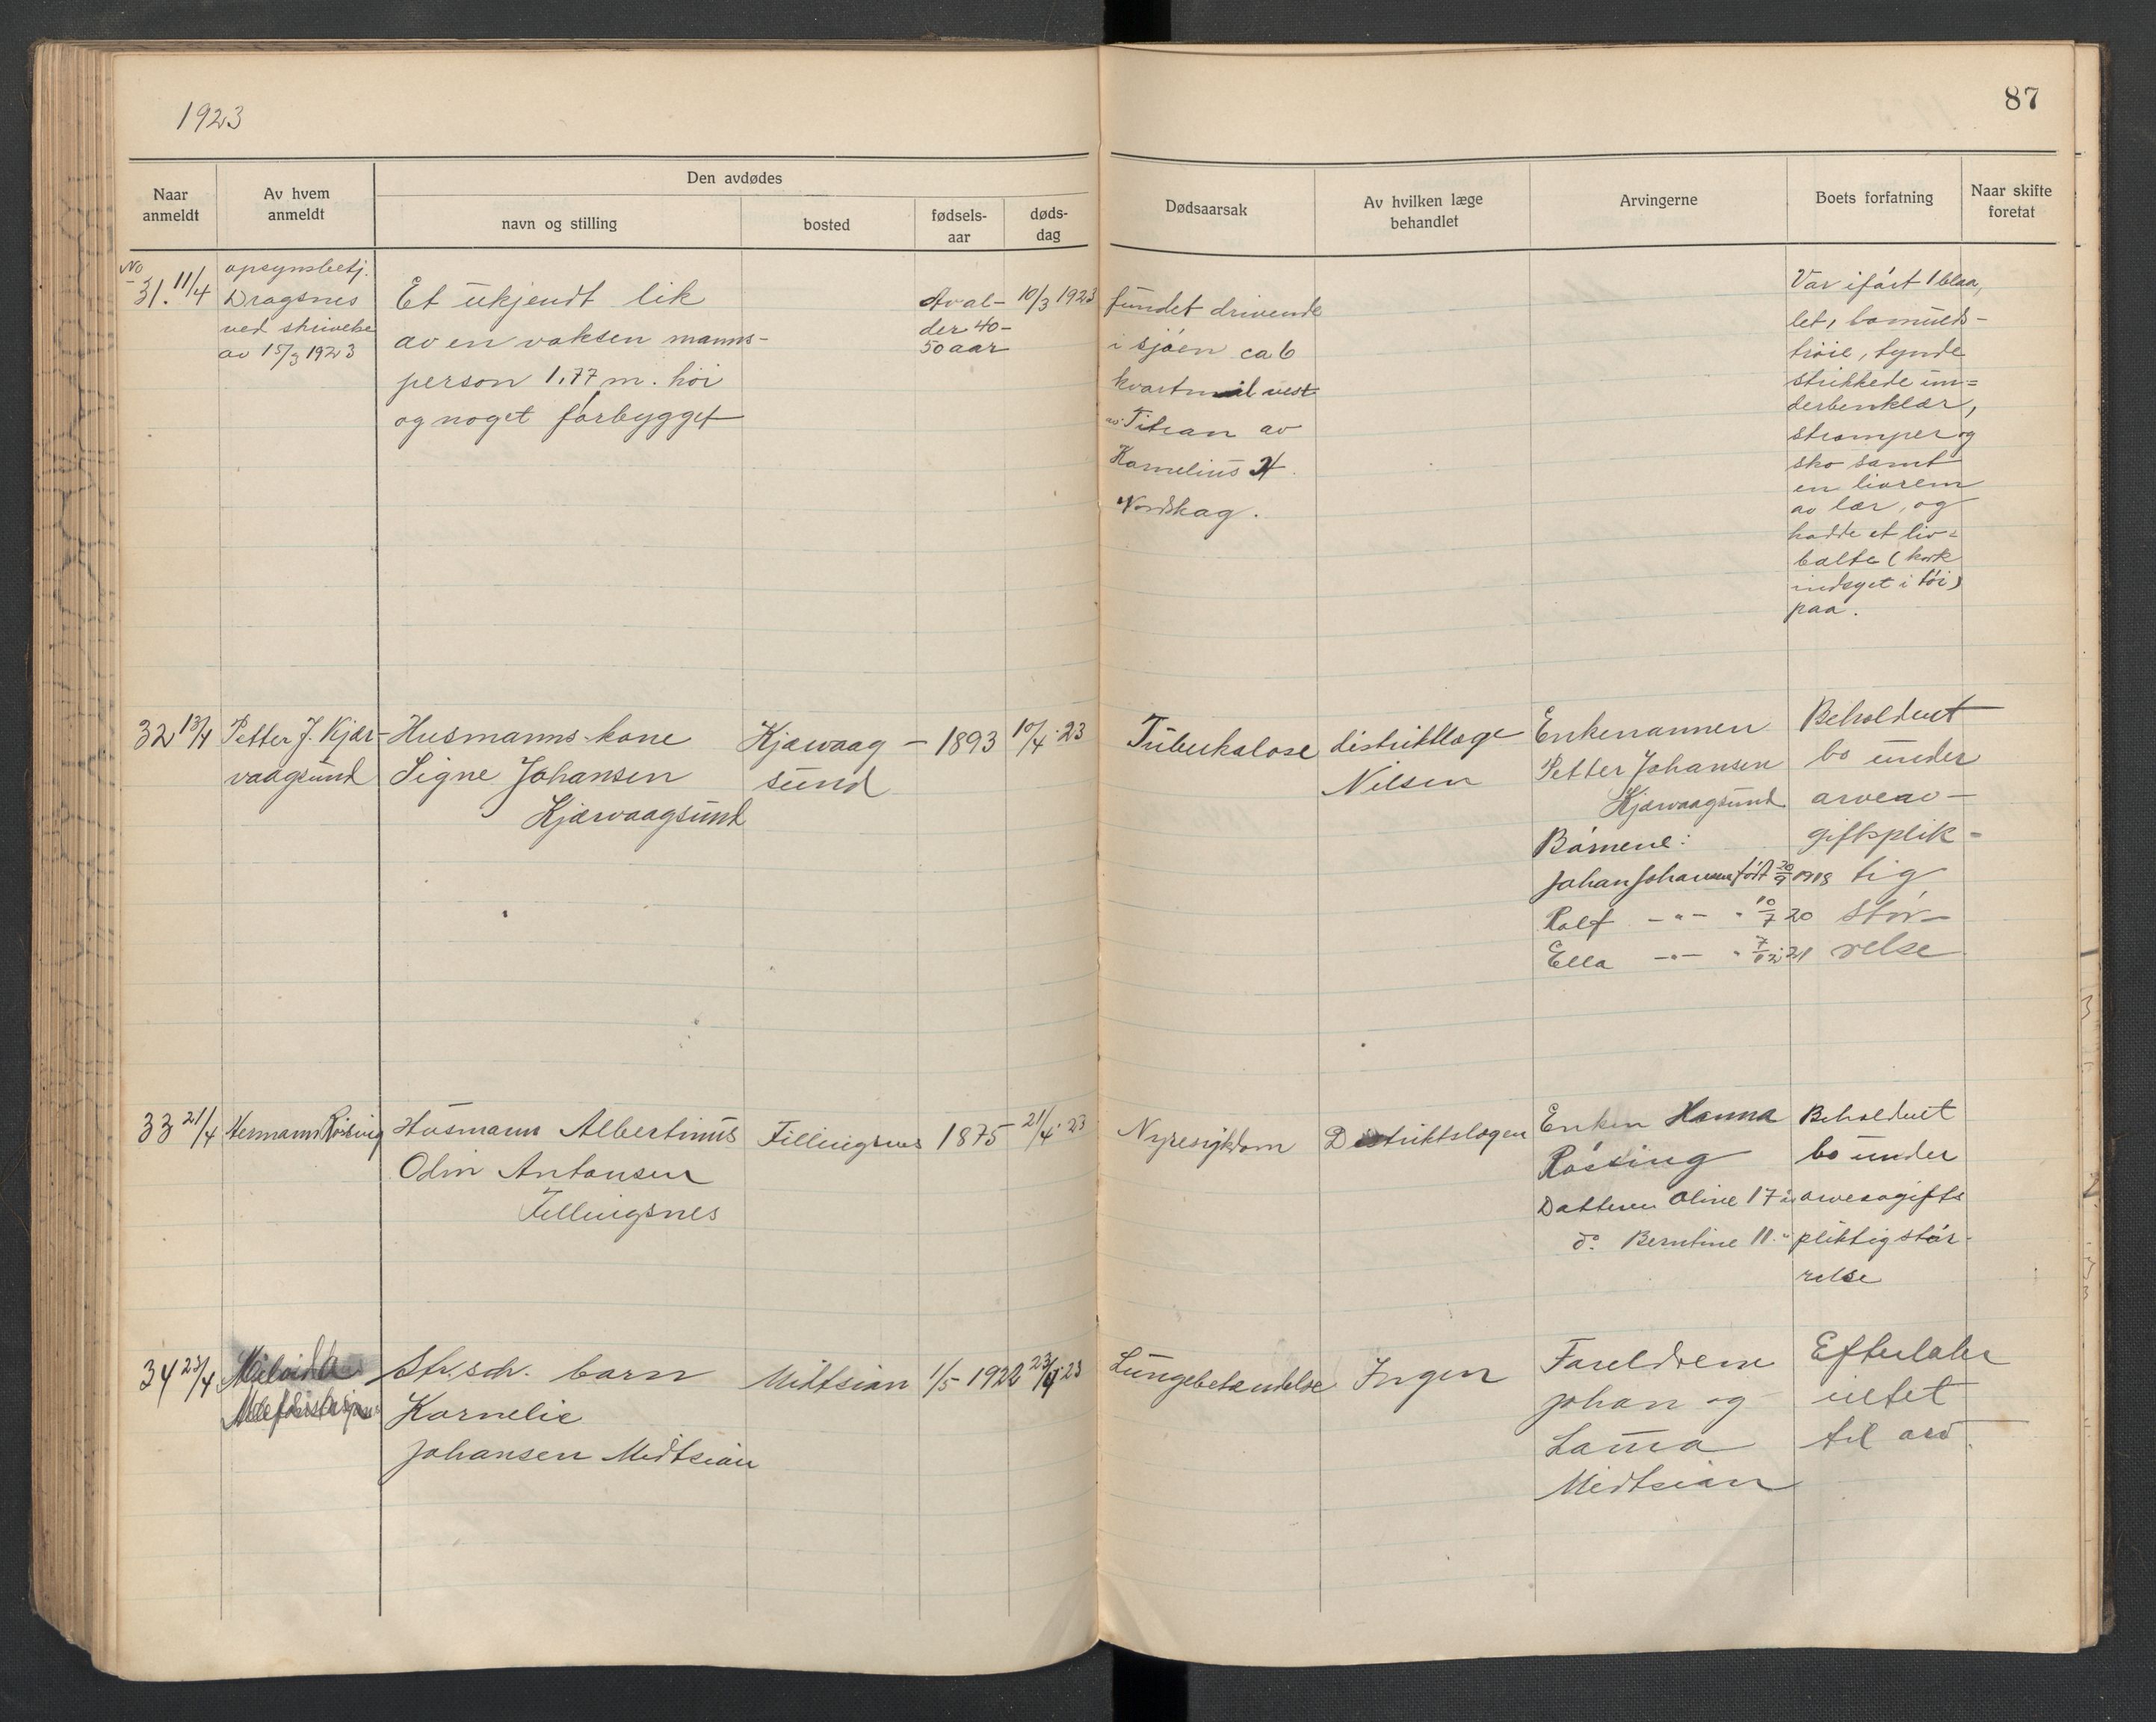 1923
87
Naar anmeldt
Av hvem anmeldt
Den avdødes
navn og stilling
bosted
fødsels-aar
døds-dag
Dødsaarsak
Av hvilken læge behandlet
Arvingerne
Boets forfatning
Naar skifte foretat
No
31. 11/4
opsynsbetj.
Dragsnes
ved skrivelse
av 15/3 1923
Et ukjendt lik
av en voksen manns-
person 1,77 m. høi
og noget førbygget
Av al-
der 40-
50 aar
10/3 1923
fundet drivende
i sjøen ca 6
kvartmil vest
av Titran av
Kornelius H.
Nordskag.
Var iført 1 blaa,
let, bomulds-
trøie, tynde
strikkede un=
derbenklær,
strømper og
sko samt
en livrem
av lær, og
hadde et liv=
balte (kork
indsyet i tøi)
paa.
32 13/4
Petter J. Kjær-
vaagsund
Husmanns-kone
Signe Johansen
Kjærvaagsund
Kjærvaag-
sund
1893
10/4-23
Tuberkulose
distriktslæge
Nilsen
Enkemannen
Petter Johansen
Kjærvaagsund
Børnene:
Johan Johansen født 20/9 1918
Rolf -"- " 10/7 20
Ella -"- " 7/12 21
Beholdent
bo under
arveav-
giftsplik=
tig
stør-
relse
33 21/4
Hermann Røssing
Husmann Albertinus
Odin Antonsen
Fillingsnes
Fillingsnes
1875
21/4-23
Nyresygdom
Distriktslægen
Enken Hanna
Røssing
Datteren Oline 17 år
do. Berntine 11 "
Beholdent
bo under
arveavgifts
pliktig stør-
relse
34 23/4
Str.sdr. barn
Kornelie
Johansen Midtsian
Midtsian
1/5 1922
23/4-23
Lungebetændelse
Ingen
Foreldrene
Johan og
Laura
Midtsian
Efterlater
intet
til arv.